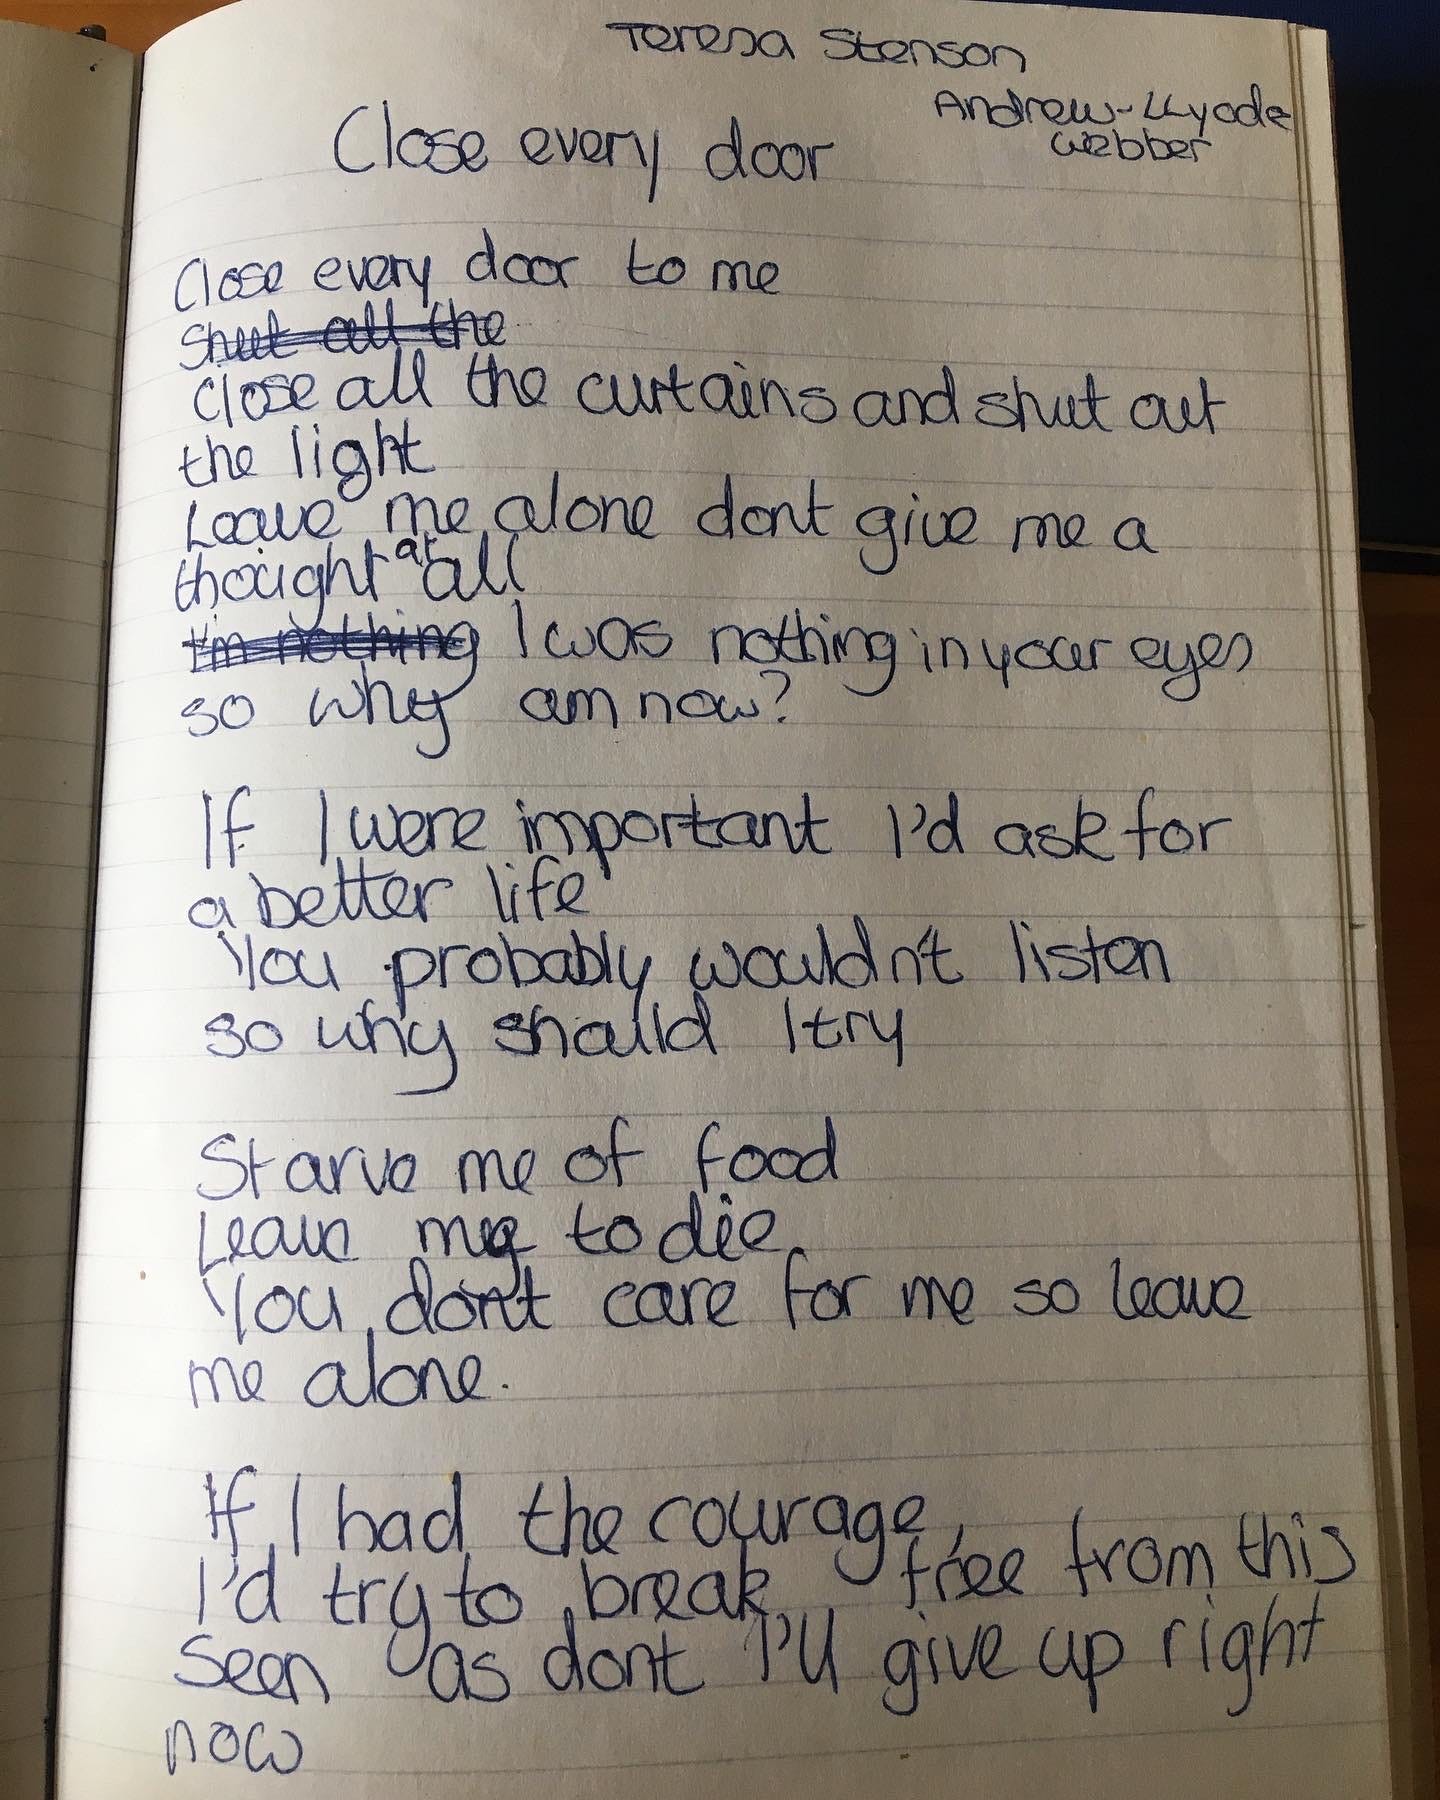 Teresa Stenson
Andrew-LLyode
Webber
Close every door
Close every door to me
Shut all the
Close all the curtains and shut out
the light
Leave me alone dont give me a
thought at all
I'm nothing I was nothing in your eyes
so why am now?
If I were important I'd ask for
a better life
You probably wouldn't listen
so why should I try
Starve me of food
Leave me to die
You dont care for me so leave
me alone.
If I had the courage,
I'd try to break free from this
Seen as dont I'll give up right
now